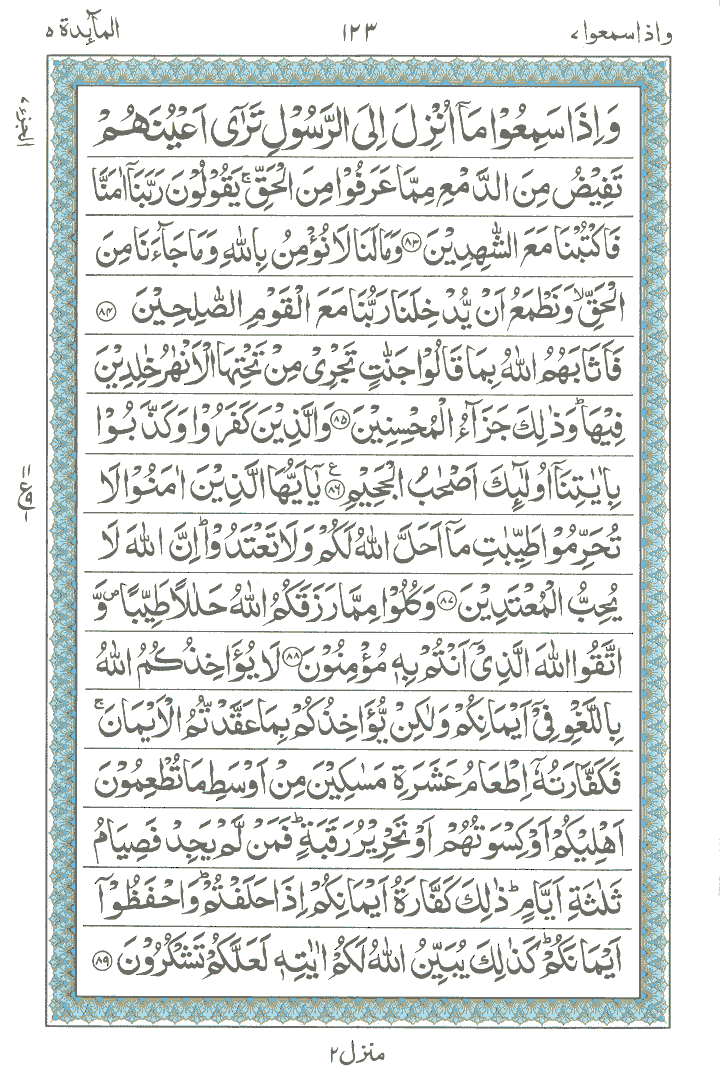 واذاسمعوا٧ ١٢٣ المآئدة ٥
الجزء ٧
وَاِذَا سَمِعُوْا مَاۤ اُنْزِلَ اِلَى الرَّسُوْلِ تَرٰۤى اَعْيُنَهُمْ
تَفِيْضُ مِنَ الدَّمْعِ مِمَّا عَرَفُوْا مِنَ الْحَقِّ ۚ يَقُوْلُوْنَ رَبَّنَاۤ اٰمَنَّا
فَاكْتُبْنَا مَعَ الشّٰهِدِيْنَ ﴿۸۳﴾ وَمَا لَنَا لَا نُؤْمِنُ بِاللّٰهِ وَمَا جَآءَنَا مِنَ
الْحَقِّ ۙ وَنَطْمَعُ اَنْ يُّدْخِلَنَا رَبُّنَا مَعَ الْقَوْمِ الصّٰلِحِيْنَ ﴿۸۴﴾
فَاَثَابَهُمُ اللّٰهُ بِمَا قَالُوْا جَنّٰتٍ تَجْرِىْ مِنْ تَحْتِهَا الْاَنْهٰرُ خٰلِدِيْنَ
فِيْهَا ؕ وَذٰلِكَ جَزَآءُ الْمُحْسِنِيْنَ ﴿۸۵﴾ وَالَّذِيْنَ كَفَرُوْا وَكَذَّبُوْا
بِاٰيٰتِنَاۤ اُولٰٓئِكَ اَصْحٰبُ الْجَحِيْمِ ﴿۸۶﴾ ع يٰۤاَيُّهَا الَّذِيْنَ اٰمَنُوْا لَا
تُحَرِّمُوْا طَيِّبٰتِ مَاۤ اَحَلَّ اللّٰهُ لَكُمْ وَلَا تَعْتَدُوْا ؕ اِنَّ اللّٰهَ لَا
يُحِبُّ الْمُعْتَدِيْنَ ﴿۸۷﴾ وَكُلُوْا مِمَّا رَزَقَكُمُ اللّٰهُ حَلٰلًا طَيِّبًا ۖ وَّ
اتَّقُوا اللّٰهَ الَّذِىْۤ اَنْتُمْ بِهٖ مُؤْمِنُوْنَ ﴿۸۸﴾ لَا يُؤَاخِذُكُمُ اللّٰهُ
بِاللَّغْوِ فِىْۤ اَيْمَانِكُمْ وَلٰكِنْ يُّؤَاخِذُكُمْ بِمَا عَقَّدْتُّمُ الْاَيْمَانَ ۚ
فَكَفَّارَتُهٗۤ اِطْعَامُ عَشَرَةِ مَسٰكِيْنَ مِنْ اَوْسَطِ مَا تُطْعِمُوْنَ
اَهْلِيْكُمْ اَوْ كِسْوَتُهُمْ اَوْ تَحْرِيْرُ رَقَبَةٍ ؕ فَمَنْ لَّمْ يَجِدْ فَصِيَامُ
ثَلٰثَةِ اَيَّامٍ ؕ ذٰلِكَ كَفَّارَةُ اَيْمَانِكُمْ اِذَا حَلَفْتُمْ ؕ وَاحْفَظُوْۤا
اَيْمَانَكُمْ ؕ كَذٰلِكَ يُبَيِّنُ اللّٰهُ لَكُمْ اٰيٰتِهٖ لَعَلَّكُمْ تَشْكُرُوْنَ ﴿۸۹﴾
منزل ٢